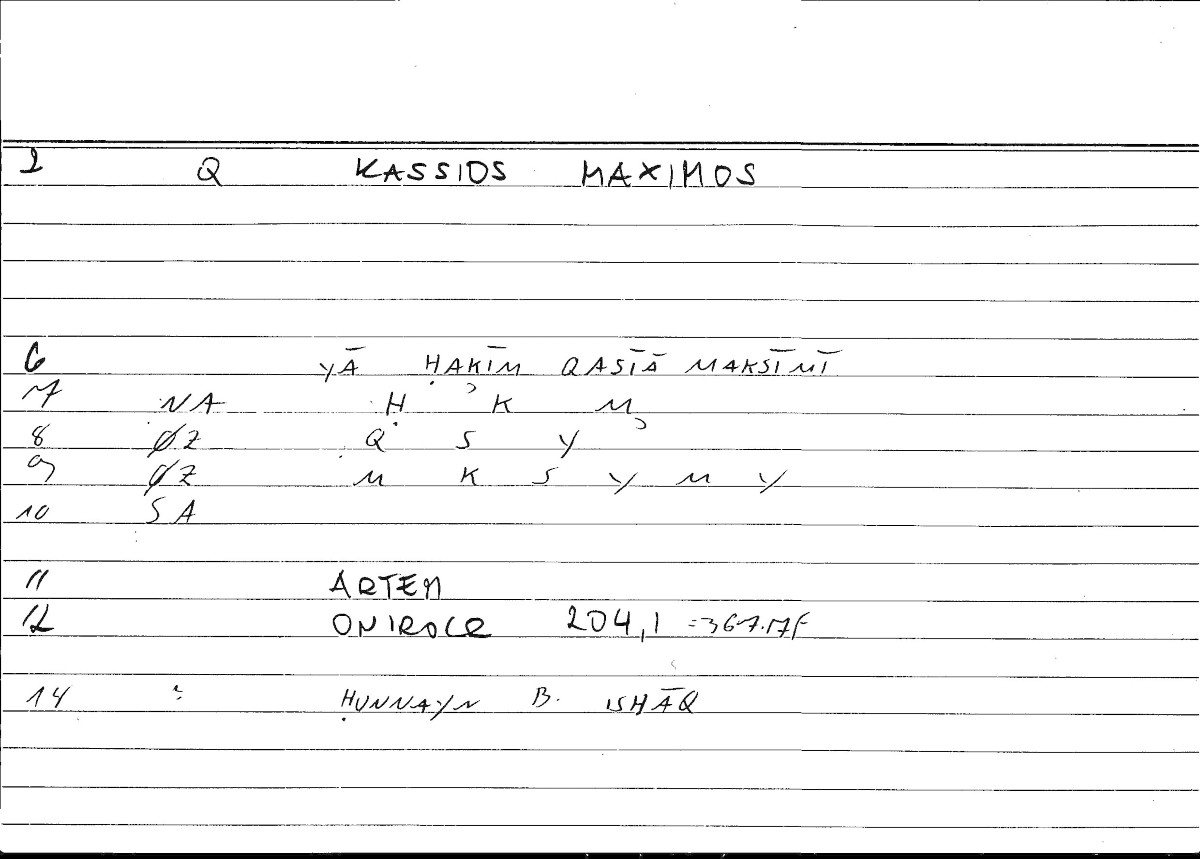 2 Q KASSIOS MAXIMOS
6 YĀ ḤAKĪM QASĪĀ MAKSĪMĪ
7 NA Ḥ K M
8 ØZ Q S Y
9 ØZ M K S Y M Y
10 SA
11 ARTEM
12 ONIROCR 204,1 =367.17F
14 : ḤUNNAYN B. ISHĀQ